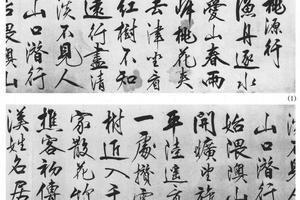 桃源行
漁舟逐水
愛山春兩
岸桃花夾
去津坐看
紅樹不知
遠行盡清
溪不見人
山口潛行
始隈隩山
(1)
山口潛行
始隈隩山
開曠望旋
平陸遙看
一處攢雲
樹近入千
家散花竹
樵客初傳
漢姓名居